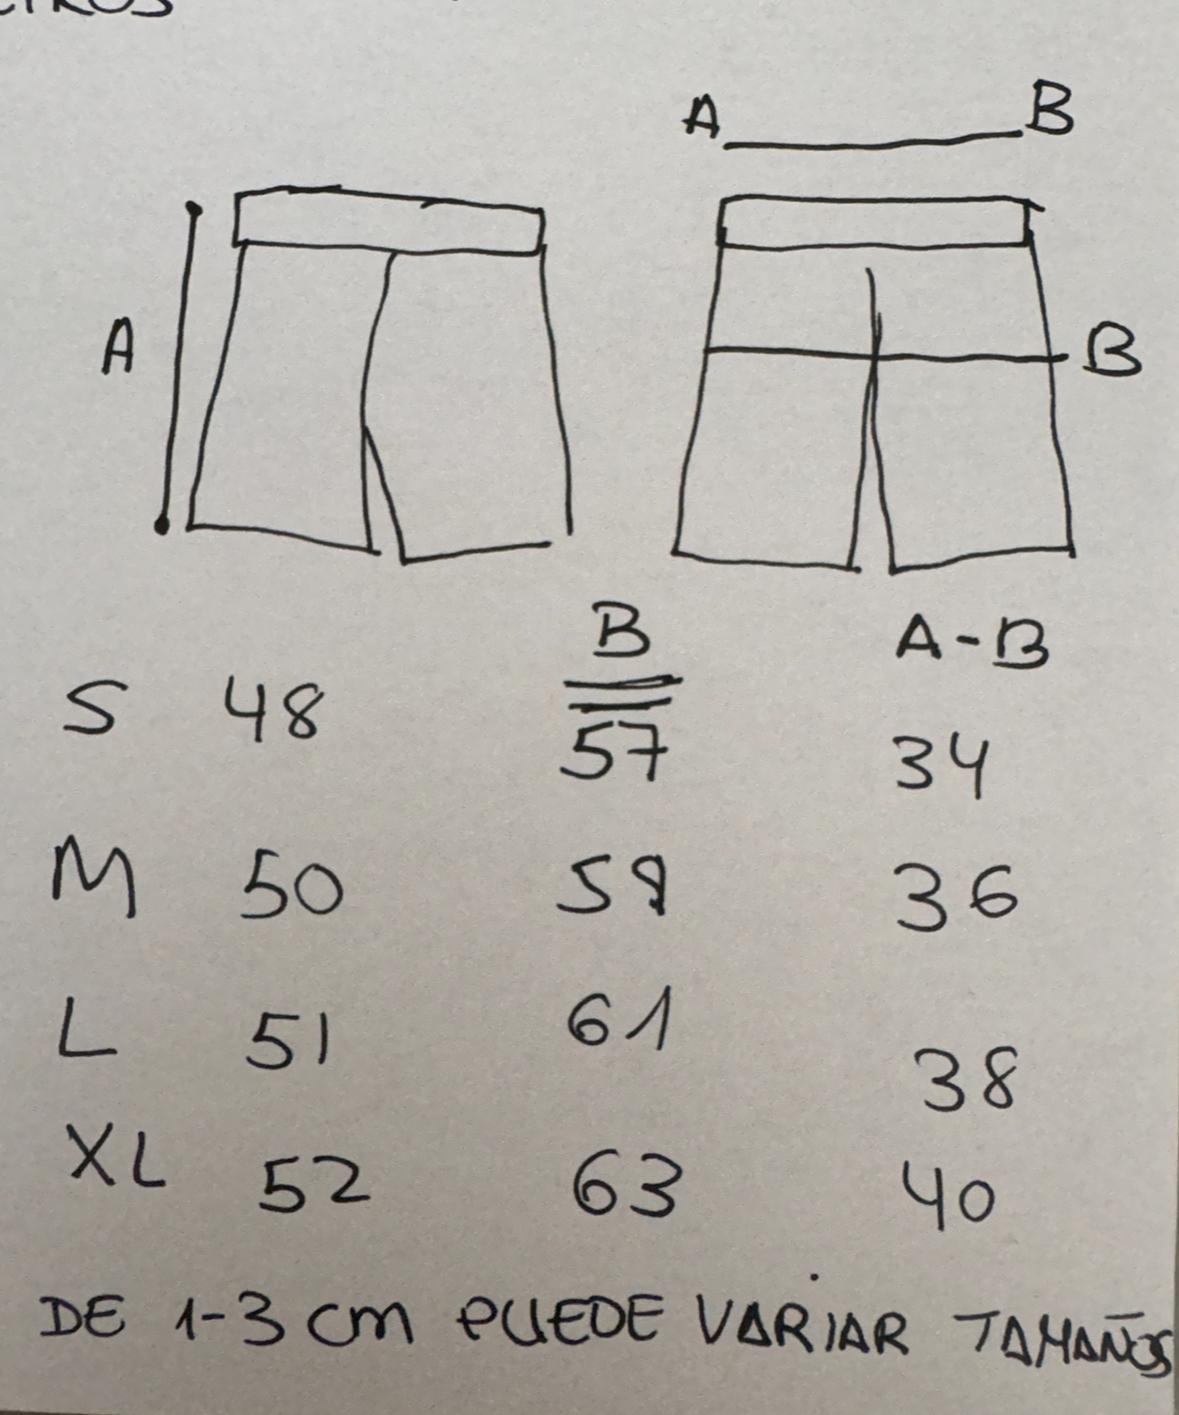 A B
A
B
B A-B
S 48 57 34
M 50 59 36
L 51 61 38
XL 52 63 40
DE 1-3 cm PUEDE VARIAR TAMAÑOS